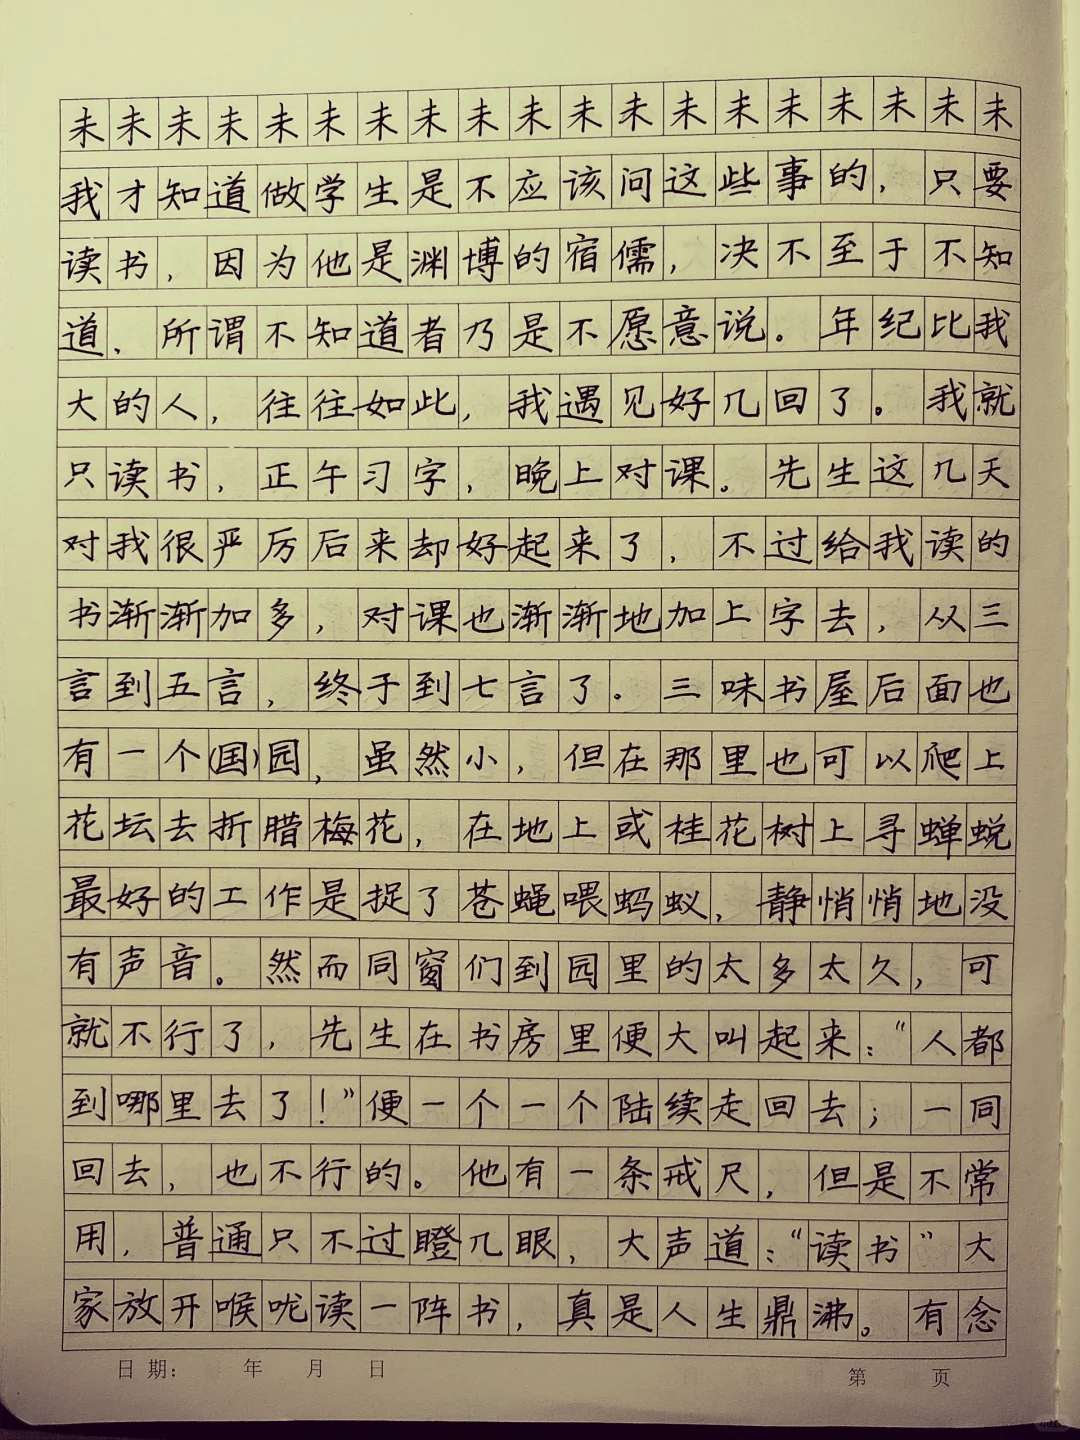 未未未未未未未未未未未未未未未未未未未
我才知道做学生是不应该问这些事的，只要
读书，因为他是渊博的宿儒，决不至于不知
道、所谓不知道者乃是不愿意说。年纪比我
大的人，往往如此，我遇见好几回了。我就
只读书，正午习字，晚上对课。先生这几天
对我很严厉后来却好起来了，不过给我读的
书渐渐加多，对课也渐渐地加上字去，从三
言到五言，终于到七言了。三味书屋后面也
有一个(国)园，虽然小，但在那里也可以爬上
花坛去折腊梅花，在地上或桂花树上寻蝉蜕
最好的工作是捉了苍蝇喂蚂蚁，静悄悄地没
有声音。然而同窗们到园里的太多太久，可
就不行了，先生在书房里便大叫起来：“人都
到哪里去了！”便一个一个陆续走回去；一同
回去，也不行的。他有一条戒尺，但是不常
用，普通只不过瞪几眼，大声道：“读书”大
家放开喉咙读一阵书，真是人生鼎沸。有念
日期： 年 月 日 第 页